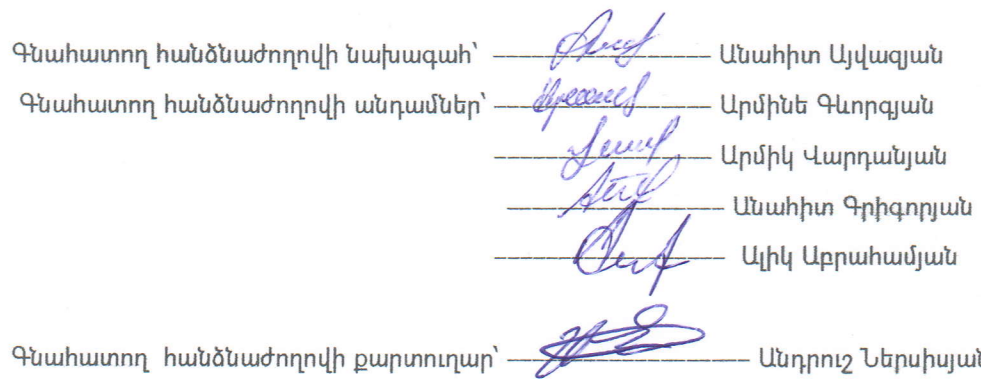 Գնահատող հանձնաժողովի նախագահ՝ Անահիտ Այվազյան
Գնահատող հանձնաժողովի անդամներ՝ Արմինե Գևորգյան
Արմիկ Վարդանյան
Անահիտ Գրիգորյան
Ալիկ Աբրահամյան
Գնահատող հանձնաժողովի քարտուղար՝ Անդրուշ Ներսիսյան